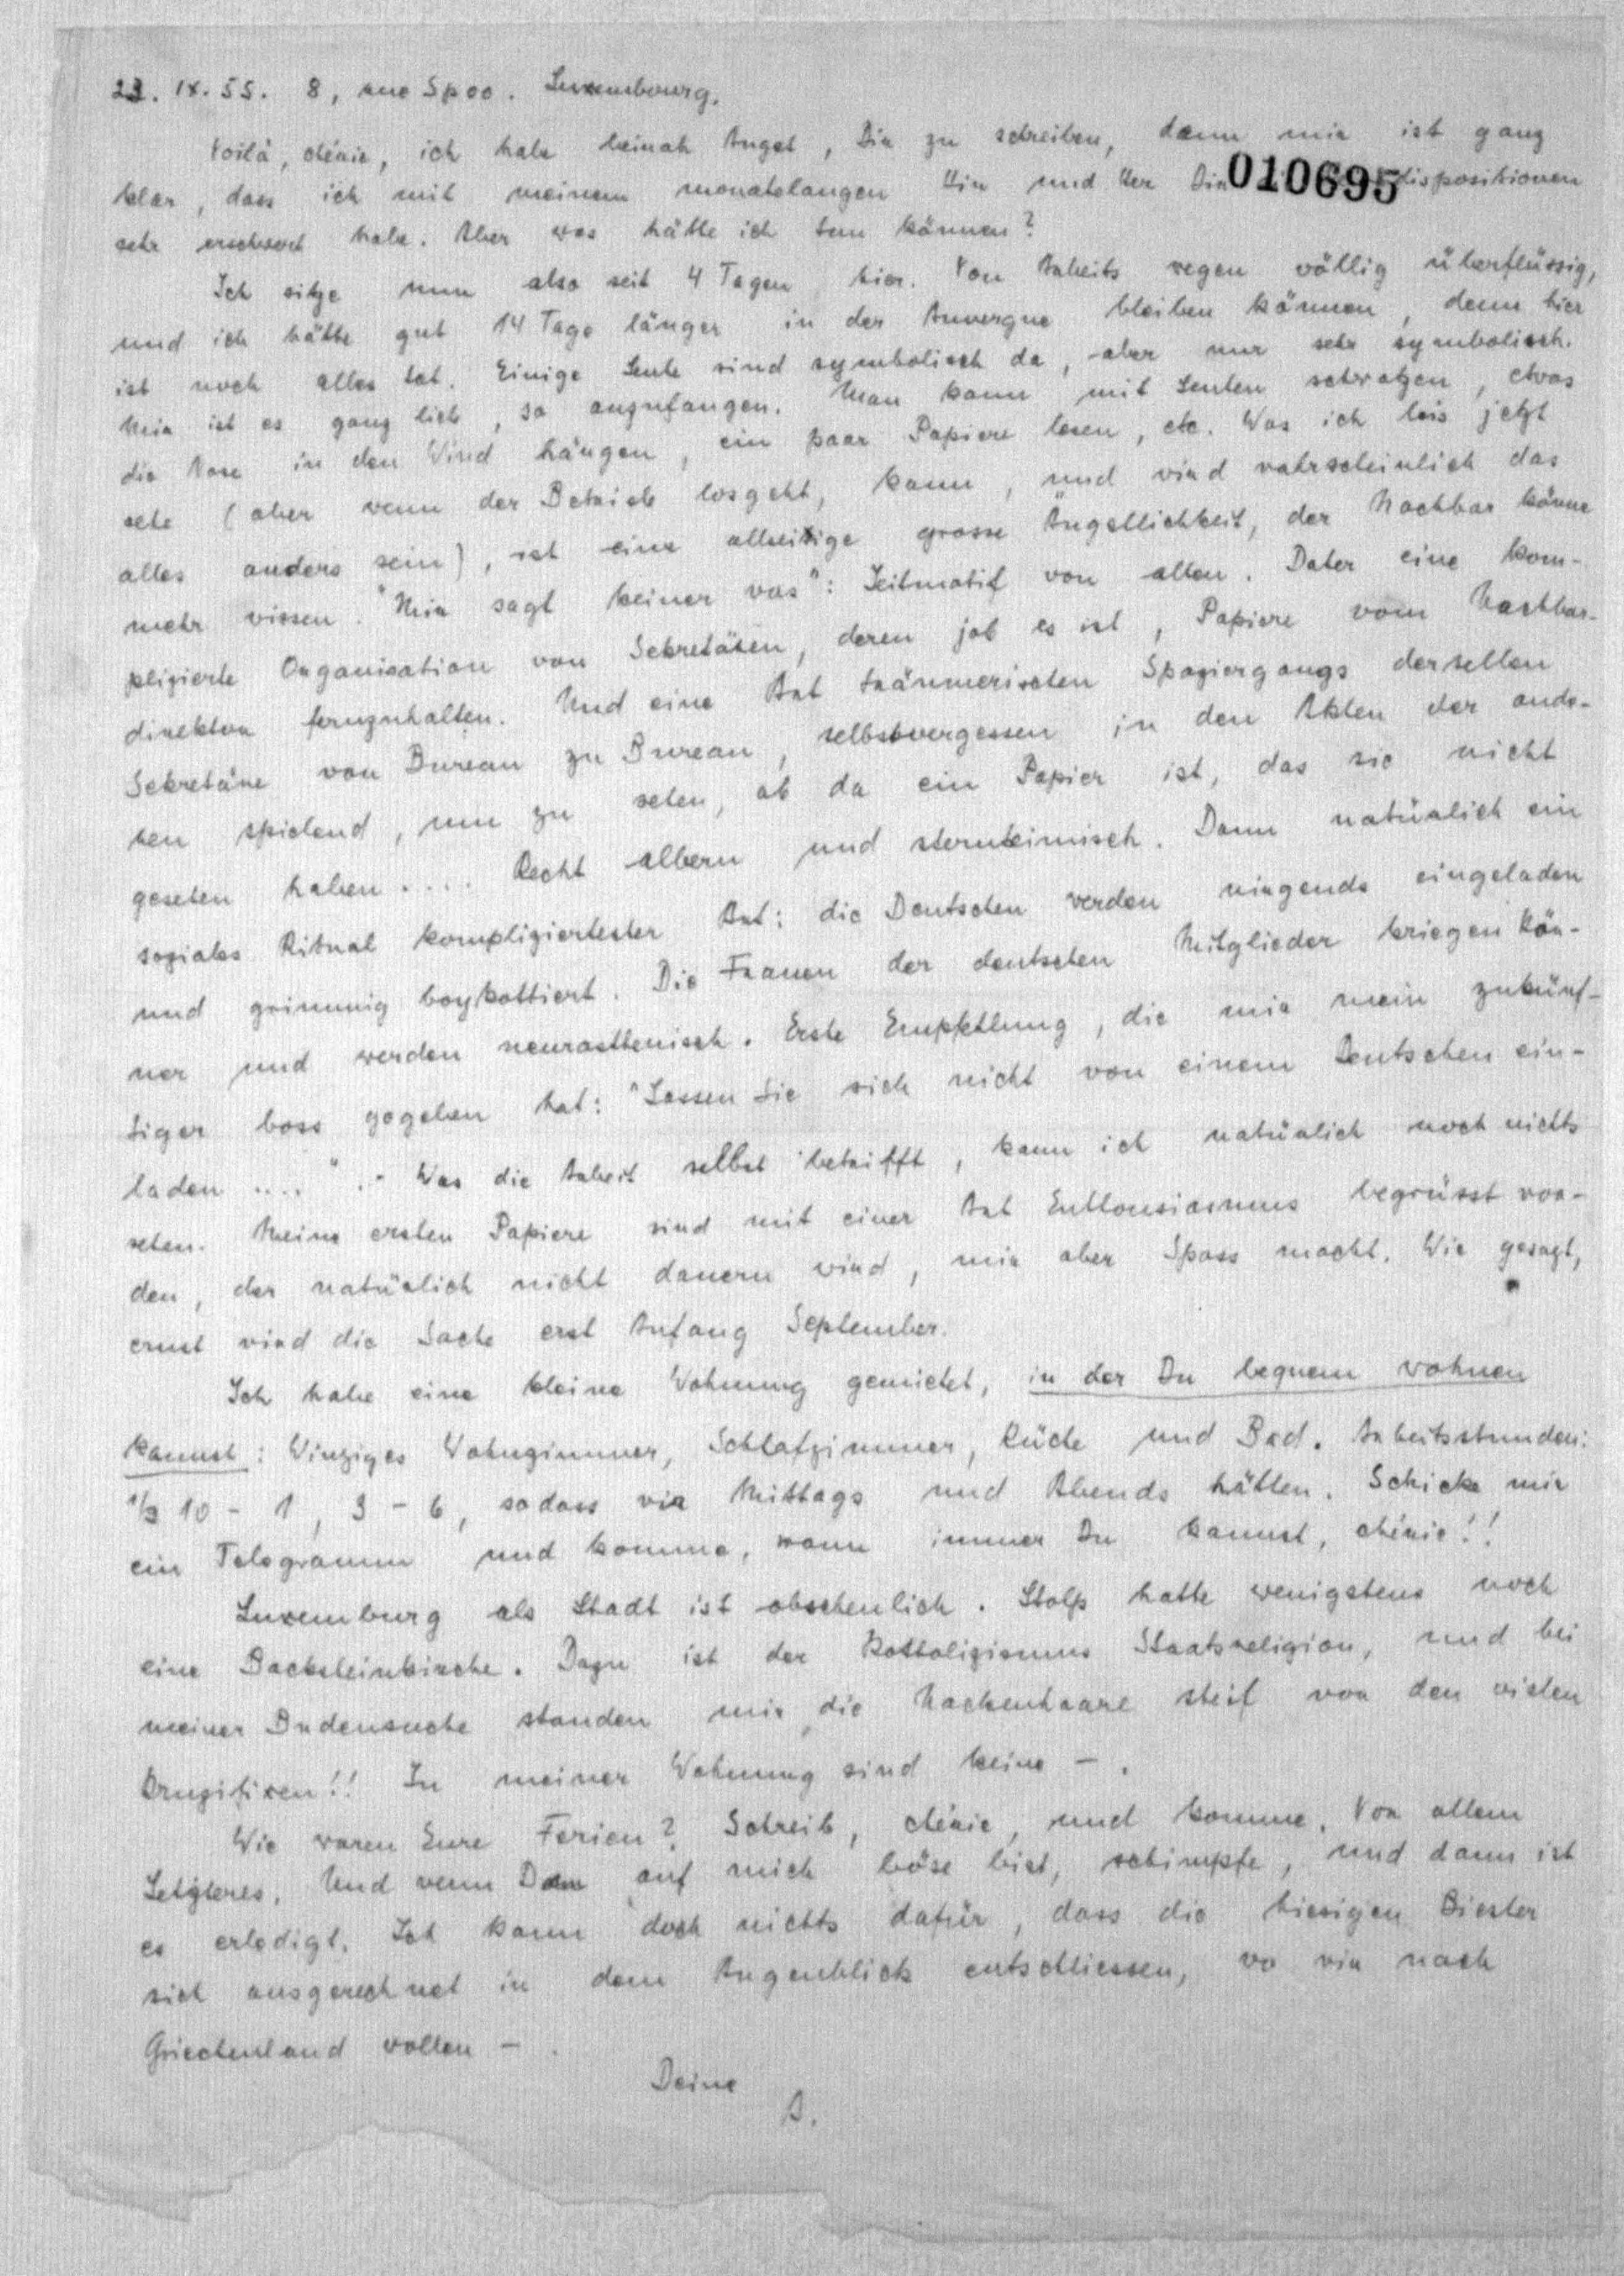 23. IX. 55. 8, rue Spoo. Luxembourg.
Voilà, chérie, ich habe beinah Angst, Dir zu schreiben, denn mir ist ganz
klar, dass ich mit meinem monatelangen Hin und Her Dir 010695 dispositionen
sehr erschwert habe. Aber was hätte ich tun können?
Ich sitze nun also seit 4 Tagen hier. Von Arbeits wegen völlig überflüssig,
und ich hätte gut 14 Tage länger in der Auvergne bleiben können, denn hier
ist noch alles tot. Einige Leute sind symbolisch da, aber nur sehr symbolisch.
Mir ist es ganz lieb, so anzufangen. Man kann mit Leuten schwatzen, etwas
die Nase in den Wind hängen, ein paar Papiere lesen, etc. Was ich bis jetzt
sehe (aber wenn der Betrieb losgeht, kann, und wird wahrscheinlich das
alles anders sein), ist eine allseitige grosse Ängstlichkeit, der Nachbar könne
mehr wissen. "Mir sagt keiner was": Leitmotif von allen. Daher eine kom-
plizierte Organisation von Sekretären, deren job es ist, Papiere vom Nachbar-
direktor fernzuhalten. Und eine Art träumerischen Spaziergangs derselben
Sekretäre von Bureau zu Bureau, selbstvergessen in den Akten der ande-
ren spielend, um zu sehen, ob da ein Papier ist, das sie nicht
gesehen haben.... Recht albern und sternheimisch. Dann natürlich ein
soziales Ritual kompliziertester Art: die Deutschen werden nirgends eingeladen
und grimmig boykottiert. Die Frauen der deutschen Mitglieder kriegen Kön-
ner und werden neurasthenisch. Erste Empfehlung, die mir mein zukünf-
tiger boss gegeben hat: "Lassen Sie sich nicht von einem Deutschen ein-
laden ...." .- Was die Arbeit selbst betrifft, kann ich natürlich noch nichts
sehen. Meine ersten Papiere sind mit einer Art Enthousiasmus begrüsst wor-
den, der natürlich nicht dauern wird, mir aber Spass macht. Wie gesagt,
ernst wird die Sache erst Anfang September.
Ich habe eine kleine Wohnung gemietet, in der Du bequem wohnen
kannst: Winziges Wohnzimmer, Schlafzimmer, Küche und Bad. Arbeitsstunden:
1/2 10 - 1, 3 - 6, sodass wir Mittags und Abends hätten. Schicke mir
ein Telegramm und komme, wann immer Du kannst, chérie!!
Luxemburg als Stadt ist abscheulich. Stolp hatte wenigstens noch
eine Backsteinkirche. Dazu ist der Katholizismus Staatsreligion, und bei
meiner Budensuche standen mir die Nackenhaare steif von den vielen
Kruzifixen!! In meiner Wohnung sind keine - .
Wie waren Eure Ferien? Schreib, chérie, und komme. Vor allem
Letzteres. Und wenn Du auf mich böse bist, schimpfe, und dann ist
es erledigt. Ich kann doch nichts dafür, dass die hiesigen Biester
sich ausgerechnet in dem Augenblick entschliessen, wo wir nach
Griechenland wollen - .
Deine
A.